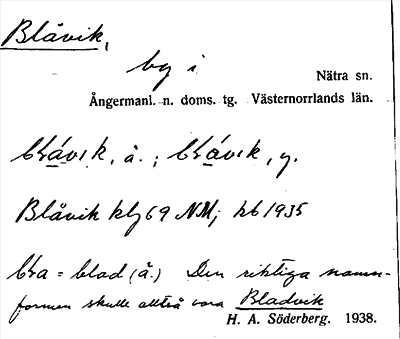 Blåvik,
by i
Nätra sn.
Ångermanl. n. doms. tg. Västernorrlands län.
blávik, ä. ; blávik, y.
Blåvik klg 69 NM; kb 1935
bla = blad (ä.) Den riktiga namn-
formen skulle alltså vara Bladvik
H. A. Söderberg. 1938.